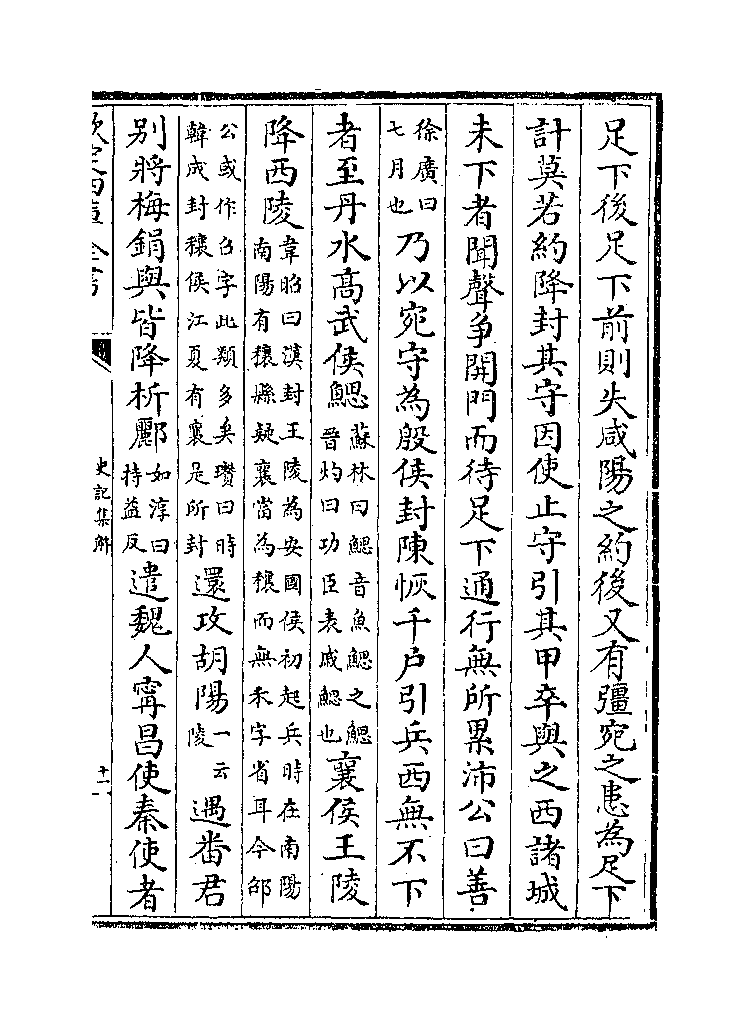 足下後足下前則失咸陽之約後又有彊宛之患為足下
計莫若約降封其守因使止守引其甲卒與之西諸城
未下者聞聲爭開門而待足下通行無所累沛公曰善
徐廣曰七月也乃以宛守為殷侯封陳恢千户引兵西無不下
者至丹水髙武侯鰓蘇林曰鰓音魚鰓之鰓晉灼曰功臣表戚鰓也襄侯王陵
降西陵韋昭曰漢封王陵為安國侯初起兵時在南陽南陽有穰縣疑襄當為穰而無禾字省耳今邵
公或作召字此類多矣瓚曰時韓成封穰侯江夏有襄是所封還攻胡陽一云陵遇番君
别將梅鋗與皆降析酈如淳曰持益反遣魏人甯昌使秦使者
欽定四庫全書
史記集解
十一